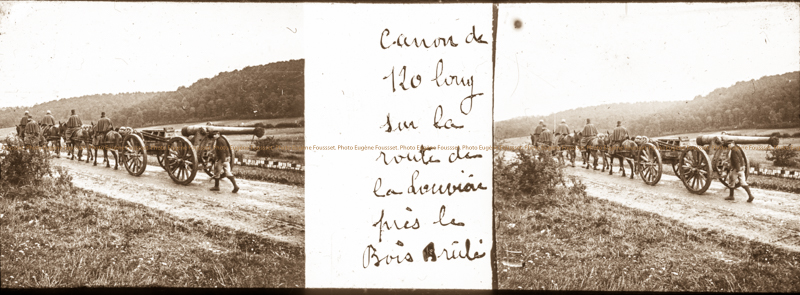 Canon de
120 long
sur la
route de
la Louvière
près le
Bois Brûlé
ne Foussset, Photo Eugène Foussset, Photo Eugène Foussset, Photo Eugène